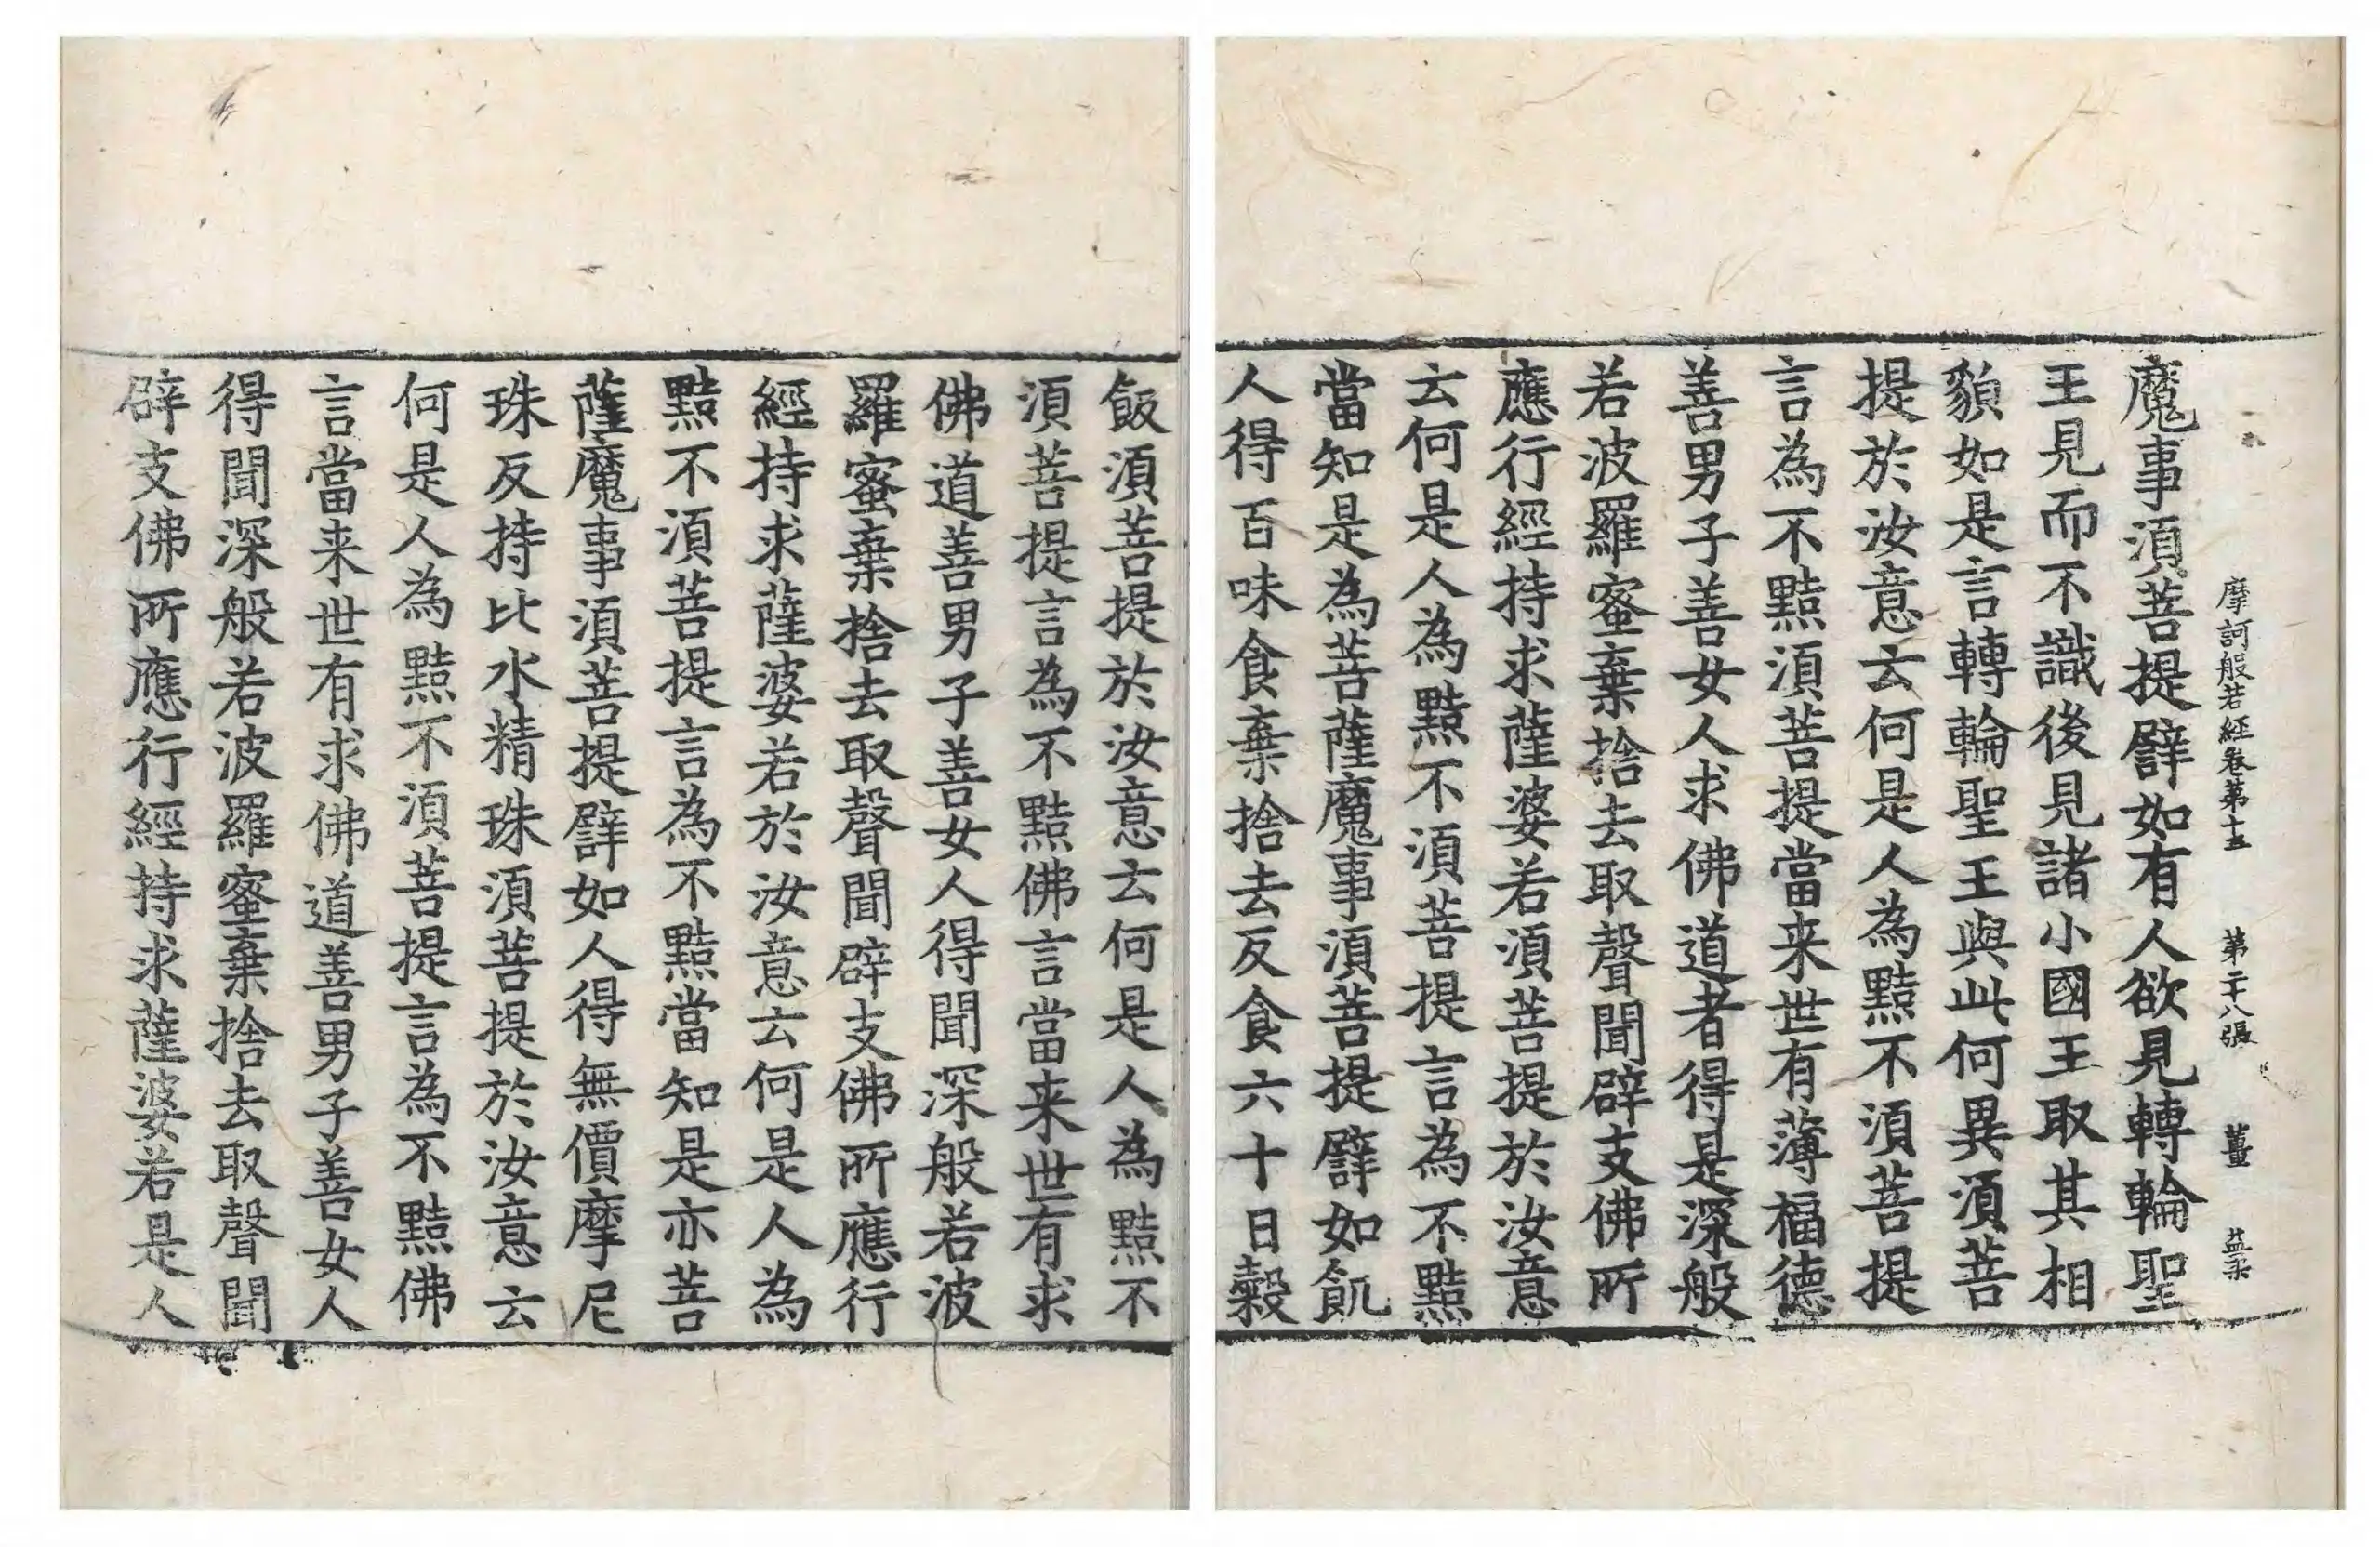 摩訶般若經卷第十五 第二十八張 薑 益柔
魔事須菩提譬如有人欲見轉輪聖
王見而不識後見諸小國王取其相
貌如是言轉輪聖王與此何異須菩
提於汝意云何是人為黠不須菩提
言為不黠須菩提當来世有薄福德
善男子善女人求佛道者得是深般
若波羅蜜棄捨去取聲聞辟支佛所
應行經持求薩婆若須菩提於汝意
云何是人為黠不須菩提言為不黠
當知是為菩薩魔事須菩提譬如飢
人得百味食棄捨去反食六十日穀
飯須菩提於汝意云何是人為黠不
須菩提言為不黠佛言當来世有求
佛道善男子善女人得聞深般若波
羅蜜棄捨去取聲聞辟支佛所應行
經持求薩婆若於汝意云何是人為
黠不須菩提言為不黠當知是亦菩
薩魔事須菩提譬如人得無價摩尼
珠反持比水精珠須菩提於汝意云
何是人為黠不須菩提言為不黠佛
言當来世有求佛道善男子善女人
得聞深般若波羅蜜棄捨去取聲聞
辟支佛所應行經持求薩婆若是人